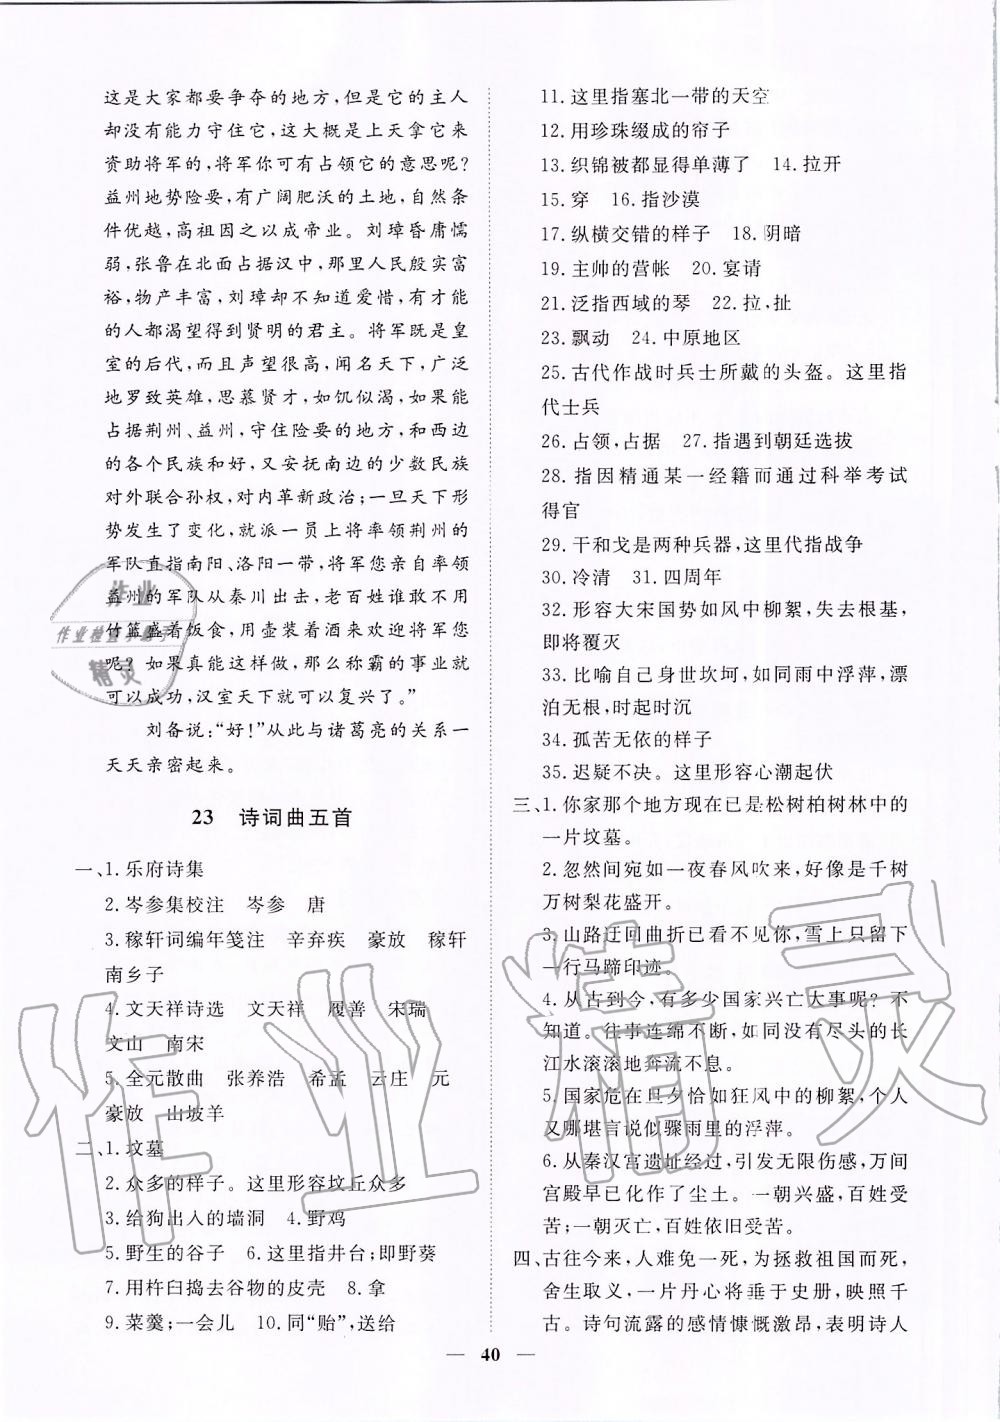 这是大家都要争夺的地方,但是它的主人
却没有能力守住它,这大概是上天拿它来
资助将军的,将军你可有占领它的意思呢?
益州地势险要,有广阔肥沃的土地,自然条
件优越,高祖因之以成帝业。刘璋昏庸懦
弱,张鲁在北面占据汉中,那里人民殷实富
裕,物产丰富,刘璋却不知道爱惜,有才能
的人都渴望得到贤明的君主。将军既是皇
室的后代,而且声望很高,闻名天下,广泛
地罗致英雄,思慕贤才,如饥似渴,如果能
占据荆州、益州,守住险要的地方,和西边
的各个民族和好,又安抚南边的少数民族,
对外联合孙权,对内革新政治;一旦天下形
势发生了变化,就派一员上将率领荆州的
军队直指南阳、洛阳一带,将军您亲自率领
益州的军队从秦川出去,老百姓谁敢不用
竹篮盛着饭食,用壶装着酒来欢迎将军您
呢?如果真能这样做,那么称霸的事业就
可以成功,汉室天下就可以复兴了。”
刘备说:“好!”从此与诸葛亮的关系一
天天亲密起来。
23 诗词曲五首
一、1.乐府诗集
2.岑参集校注 岑参 唐
3.稼轩词编年笺注 辛弃疾 豪放 稼轩
南乡子
4.文天祥诗选 文天祥 履善 宋瑞
文山 南宋
5.全元散曲 张养浩 希孟 云庄 元
豪放 山坡羊
二、1.坟墓
2.众多的样子。这里形容坟丘众多
3.给狗出入的墙洞 4.野鸡
5.野生的谷子 6.这里指井台;即野葵
7.用杵臼捣去谷物的皮壳 8.拿
9.菜羹;一会儿 10.同“贻”,送给
11.这里指塞北一带的天空
12.用珍珠缀成的帘子
13.织锦被都显得单薄了 14.拉开
15.穿 16.指沙漠
17.纵横交错的样子 18.阴暗
19.主帅的营帐 20.宴请
21.泛指西域的琴 22.拉,扯
23.飘动 24.中原地区
25.古代作战时兵士所戴的头盔。这里指
代士兵
26.占领,占据 27.指遇到朝廷选拔
28.指因精通某一经籍而通过科举考试
得官
29.干和戈是两种兵器,这里代指战争
30.冷清 31.四周年
32.形容大宋国势如风中柳絮,失去根基,
即将覆灭
33.比喻自己身世坎坷,如同雨中浮萍,漂
泊无根,时起时沉
34.孤苦无依的样子
35.迟疑不决。这里形容心潮起伏
三、1.你家那个地方现在已是松树柏树林中的
一片坟墓。
2.忽然间宛如一夜春风吹来,好像是千树
万树梨花盛开。
3.山路迂回曲折已看不见你,雪上只留下
一行马蹄印迹。
4.从古到今,有多少国家兴亡大事呢?不
知道。往事连绵不断,如同没有尽头的长
江水滚滚地奔流不息。
5.国家危在旦夕恰如狂风中的柳絮,个人
又哪堪言说似骤雨里的浮萍。
6.从秦汉宫遗址经过,引发无限伤感,万间
宫殿早已化作了尘土。一朝兴盛,百姓受
苦;一朝灭亡,百姓依旧受苦。
四、古往今来,人难免一死,为拯救祖国而死,
舍生取义,一片丹心将垂于史册,映照千
古。诗句流露的感情慷慨激昂,表明诗人
— 40 —
作业
作业检查小助手
精灵
作业精灵